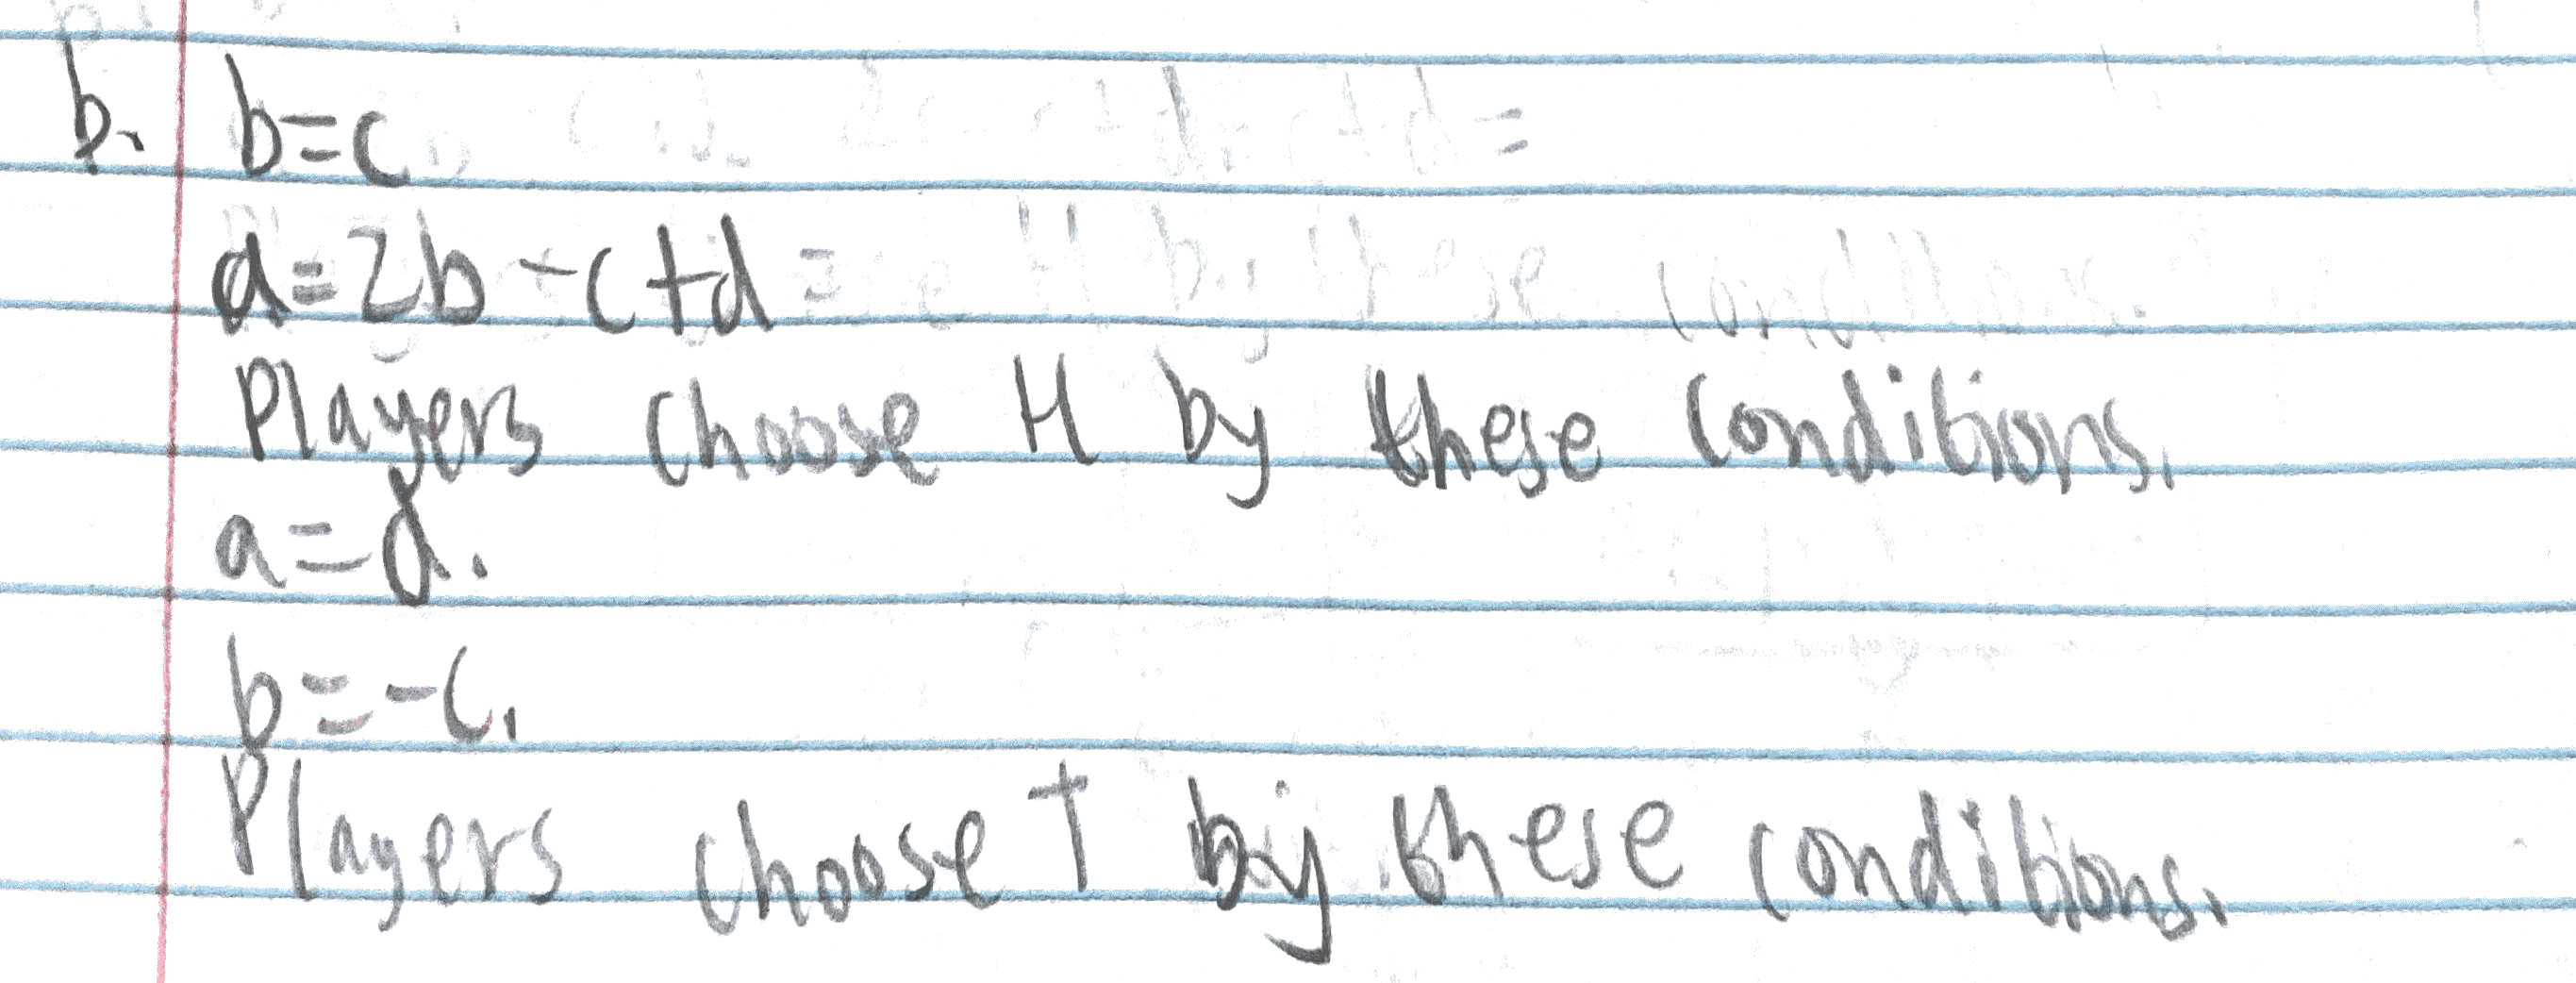 b. b=c
a=2b-c+d=
Players choose H by these conditions.
a=d.
b=-c.
Players choose T by these conditions.